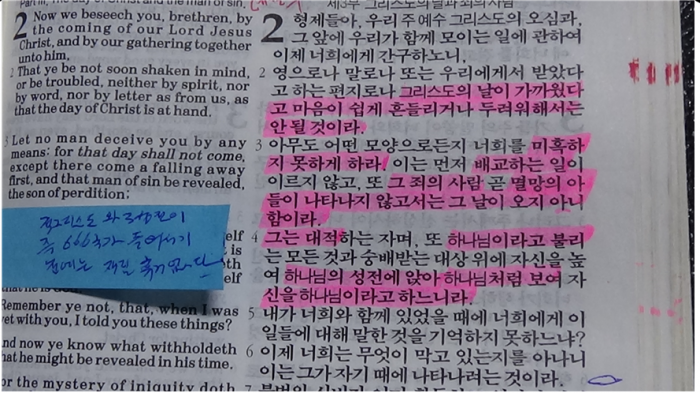 Part III, the day of Christ and the man of sin.
2 Now we beseech you, brethren, by
the coming of our Lord Jesus
Christ, and by our gathering together
unto him,
2 That ye be not soon shaken in mind,
or be troubled, neither by spirit, nor
by word, nor by letter as from us, as
that the day of Christ is at hand.
3 Let no man deceive you by any
means: for that day shall not come,
except there come a falling away
first, and that man of sin be revealed,
the son of perdition;
적그리스도와 성전이
즉 666 들어서기
전에는 재림
Remember ye not, that, when I was
yet with you, I told you these things?
And now ye know what withholdeth
that he might be revealed in his time.
For the mystery of iniquity doth
제3부 그리스도의 날과 죄의 사람
2 형제들아, 우리 주 예수 그리스도의 오심과,
그 앞에 우리가 함께 모이는 일에 관하여
이제 너희에게 간구하노니,
2 영으로나 말로나 또는 우리에게서 받았다
고 하는 편지로나 그리스도의 날이 가까웠다
고 마음이 쉽게 흔들리거나 두려워해서는
안 될 것이라.
3 아무도 어떤 모양으로든지 너희를 미혹하
지 못하게 하라. 이는 먼저 배교하는 일이
이르지 않고, 또 그 죄의 사람 곧 멸망의 아
들이 나타나지 않고서는 그 날이 오지 아니
함이라.
4 그는 대적하는 자며, 또 하나님이라고 불리
는 모든 것과 숭배받는 대상 위에 자신을 높
여 하나님의 성전에 앉아 하나님처럼 보여 자
신을 하나님이라고 하느니라.
5 내가 너희와 함께 있었을 때에 너희에게 이
일들에 대해 말한 것을 기억하지 못하느냐?
6 이제 너희는 무엇이 막고 있는지를 아나니
이는 그가 자기 때에 나타나려는 것이라.